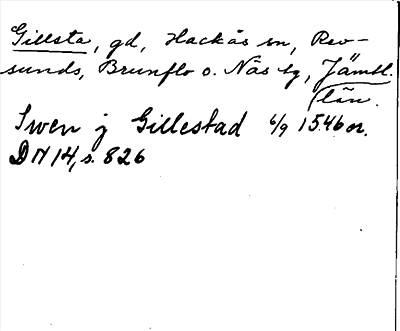 Gillsta, gd, Hackås sn, Rev-
sunds, Brunflo o. Näs tg, Jämtl.
län.
Swen j Gillestad 6/9 1546 or.
DN 14, s. 826